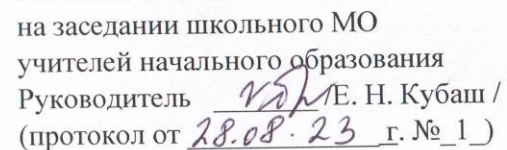 на заседании школьного МО
учителей начального образования
Руководитель /Е. Н. Кубаш /
(протокол от 28.08.23 г. №_1_)